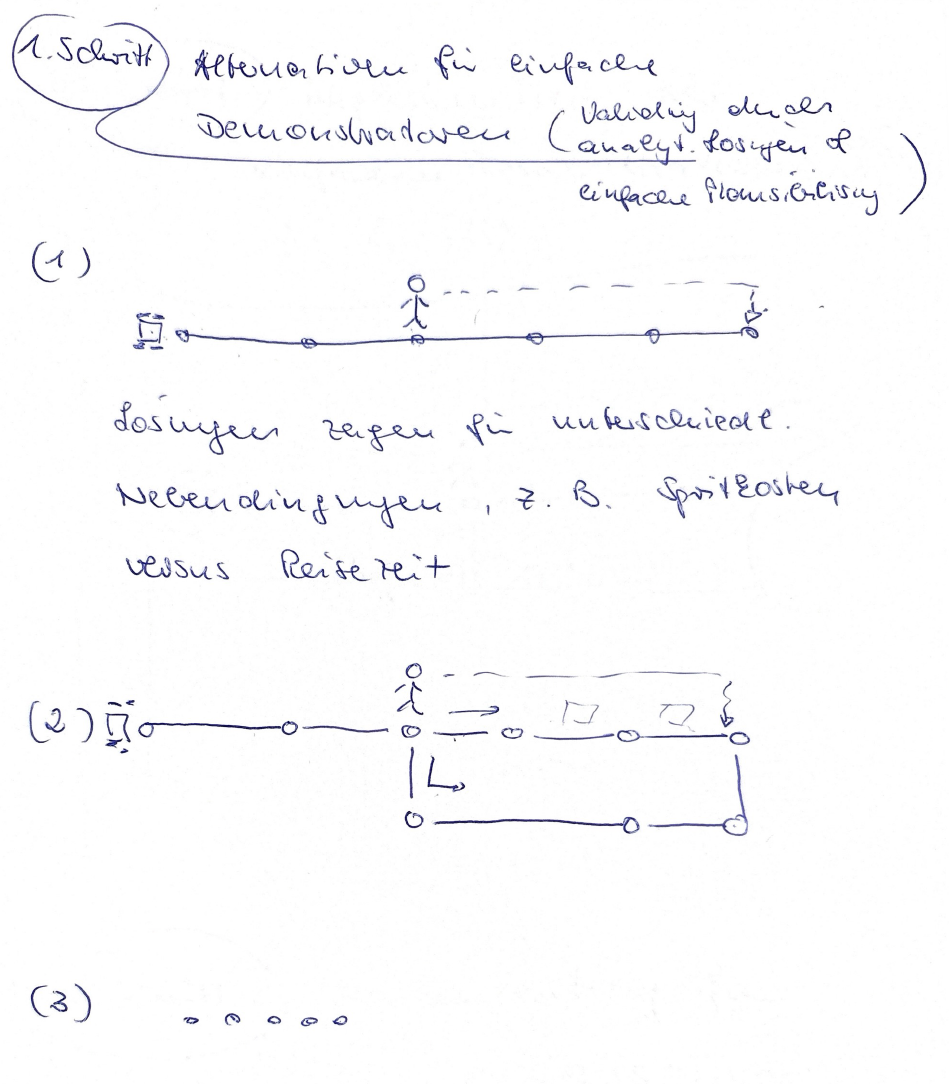 1. Schritt Alternativen für einfache
Demonstratoren (Validierung durch
analyt. Lösungen &
einfache Plausibilisierung)
(1)
Lösungen zeigen für unterschiedl.
Nebendingungen, z. B. Spritkosten
versus Reisezeit
(2)
(3)